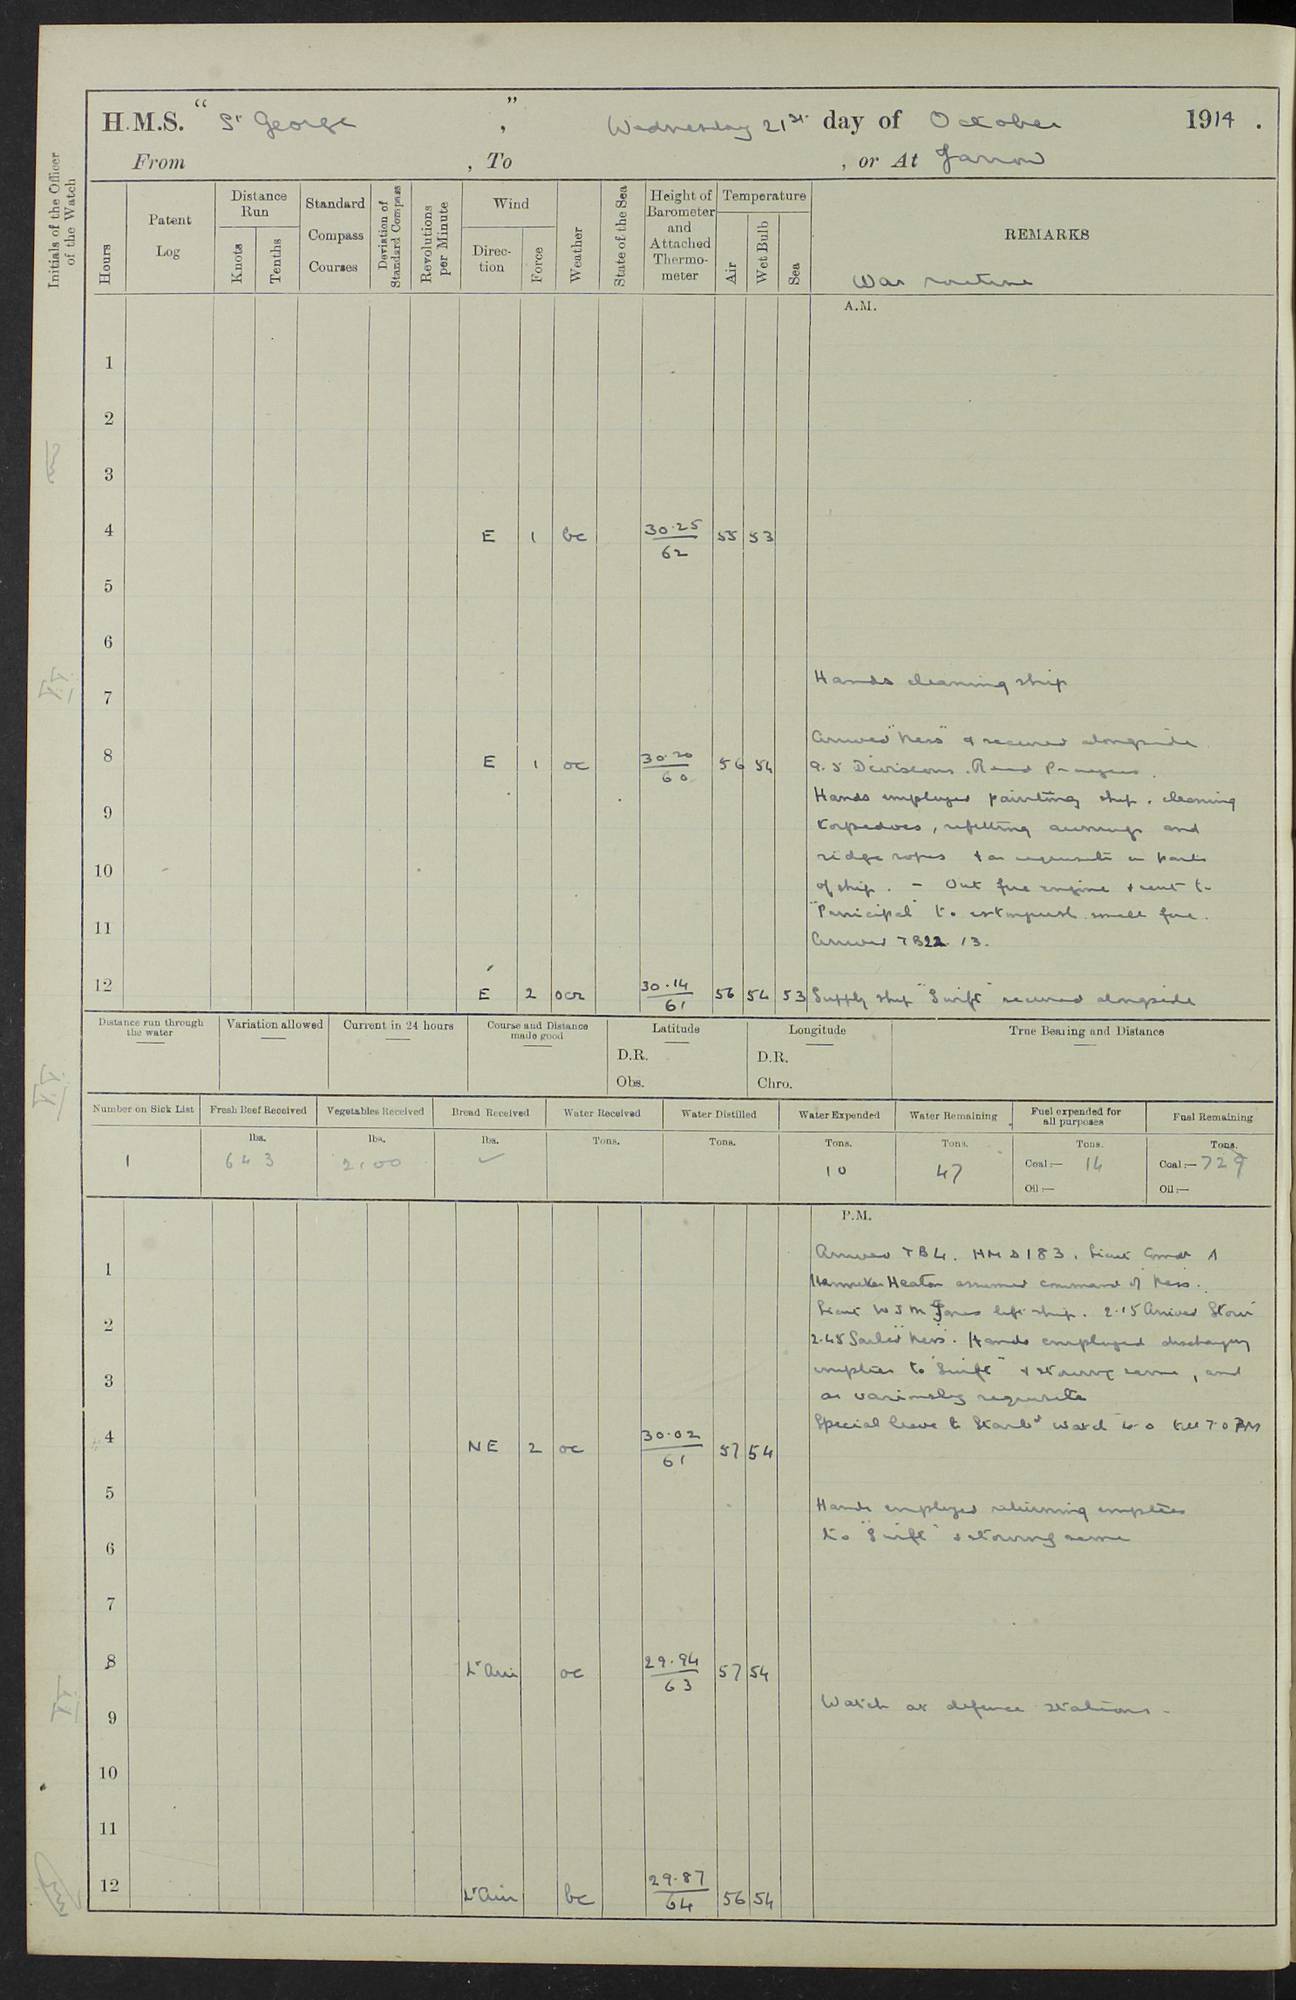 H.M.S. "St George", Wednesday 21st day of October 1914.
From , To , or At Jarrow
Initials of the Officer of the Watch
Hours
Patent Log
Distance Run
Knots
Tenths
Standard Compass Courses
Deviation of Standard Compass
Revolutions per Minute
Wind
Direction
Force
Weather
State of the Sea
Height of Barometer and Attached Thermometer
Temperature
Air
Wet Bulb
Sea
REMARKS
War routine
A.M.
1
2
3
4 E 1 bc 30.25/62 55 53
5
6
Hands cleaning ship
7
Arrived "Ness" & secured alongside
8 E 1 oc 30.20/60 56 54 9.5 Divisions. Read Prayers.
Hands employed painting ship, cleaning
9
torpedoes, refitting awnings and
ridge ropes & as requisite in parts
10
of ship. - Out fire engine & sent to
to extinguish small fire.
11
Arrived TB 22. 13.
12 E 2 ocr 30.14/61 56 54 53 Supply ship "Swift" secured alongside
Distance run through the water
Variation allowed
Current in 24 hours
Course and Distance made good
Latitude
D.R.
Obs.
Longitude
D.R.
Chro.
True Bearing and Distance
Number on Sick List
Fresh Beef Received
Vegetables Received
Bread Received
Water Received
Water Distilled
Water Expended
Water Remaining
Fuel expended for all purposes
Fuel Remaining
lbs. lbs. lbs. Tons. Tons. Tons. Tons. Tons. Tons.
1 643 2,00 10 47 Coal:— 14 Coal:— 729
Oil:— Oil:—
P.M.
Arrived TB 4. HMD 183. Lieut Comdr A
1
Henniker Heaton assumed command of Ness.
Lieut W J M Jones left ship. 2.15 Arrived Stour
2
2.45 Sailed "Ness". Hands employed discharging
empties to "Swift" & storing same, and
3
as variously requisite
Special leave to Starbd watch 4.0 till 7.0 PM
4 NE 2 oc 30.02/61 57 54
5
Hands employed returning empties
to "Swift" & storing same
6
7
8 Lt Air oc 29.94/63 57 54
Watch at defence stations.
9
10
11
12 Lt Air bc 29.87/64 56 54